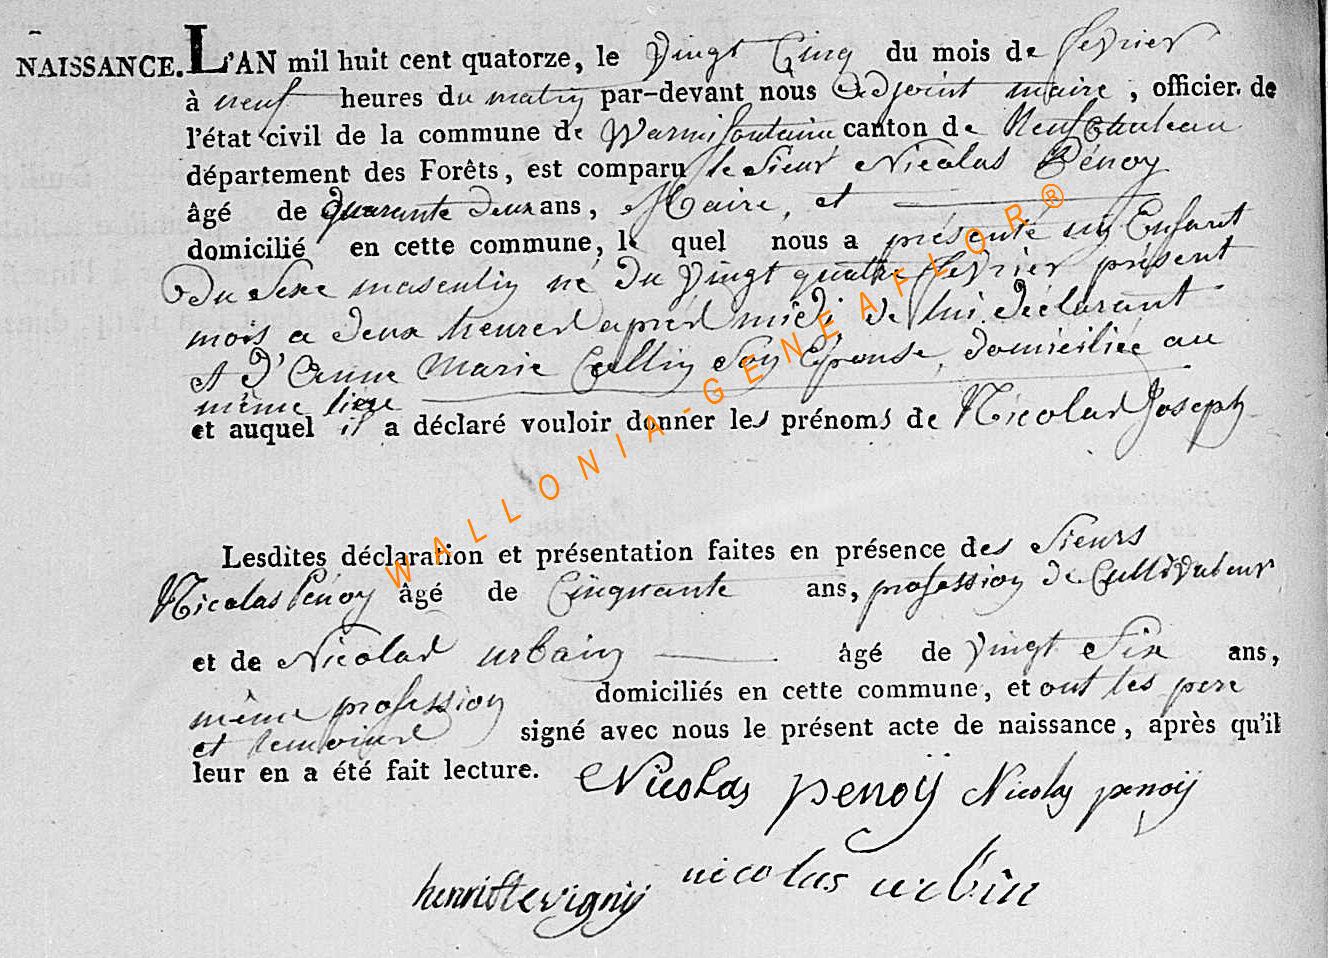 NAISSANCE. L'AN mil huit cent quatorze, le vingt Cinq du mois de fevrier
à neuf heures du matin par-devant nous adjoint maire, officier de
l'état civil de la commune de Warmifontaine canton de Neufchauteau
département des Forêts, est comparu le Sieur Nicolas Pénoy
âgé de quarante deux ans, Maire, et
domicilié en cette commune, le quel nous a présenté un Enfant
Du Sexe masculin né du vingt quatre fevrier présent
mois a deux heures apres midi, de lui déclarant
et d'Anne Marie Collin Son Epouse, domiciliée au
même lieu
et auquel il a déclaré vouloir donner les prénoms de Nicolas Joseph
Lesdites déclaration et présentation faites en présence des Sieurs
Nicolas Pénoy âgé de Cinquante ans, profession de Cultivateur
et de Nicolas urbain âgé de vingt Six ans,
même profession domiciliés en cette commune, et ont les pere
et temoins signé avec nous le présent acte de naissance, après qu'il
leur en a été fait lecture. Nicolas penoÿ Nicolas penoij
nicolas urbin
henri
WALLONIA-GENEAFLOR®